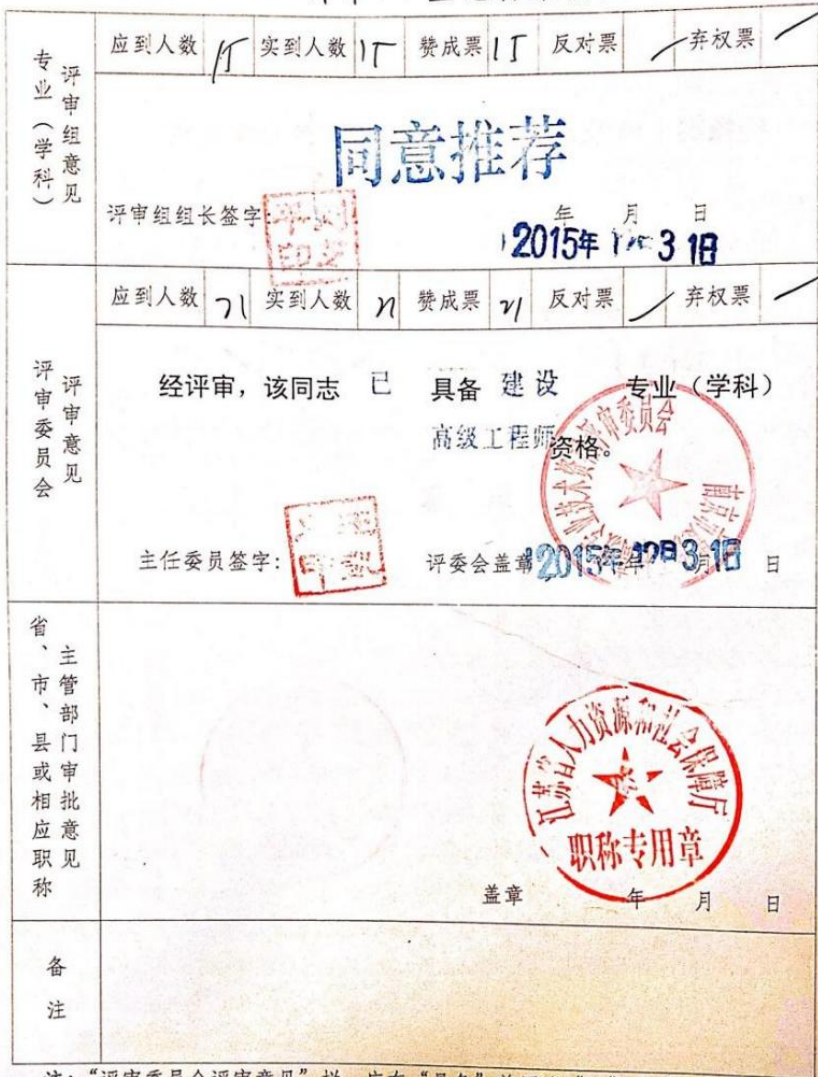 专业（学科）
评审组意见
应到人数 15 实到人数 15 赞成票 15 反对票 / 弃权票 /
同意推荐
评审组组长签字:
年 月 日
2015年 3 1日
评审委员会
评审意见
应到人数 21 实到人数 21 赞成票 21 反对票 / 弃权票 /
经评审，该同志 已 具备 建设 专业（学科）
高级工程师 资格。
主任委员签字: 评委会盖章 年 月 日
2015年12月31日
省、市、县或相应职称
主管部门审批意见
江苏省人力资源和社会保障厅
职称专用章
盖章 年 月 日
备注